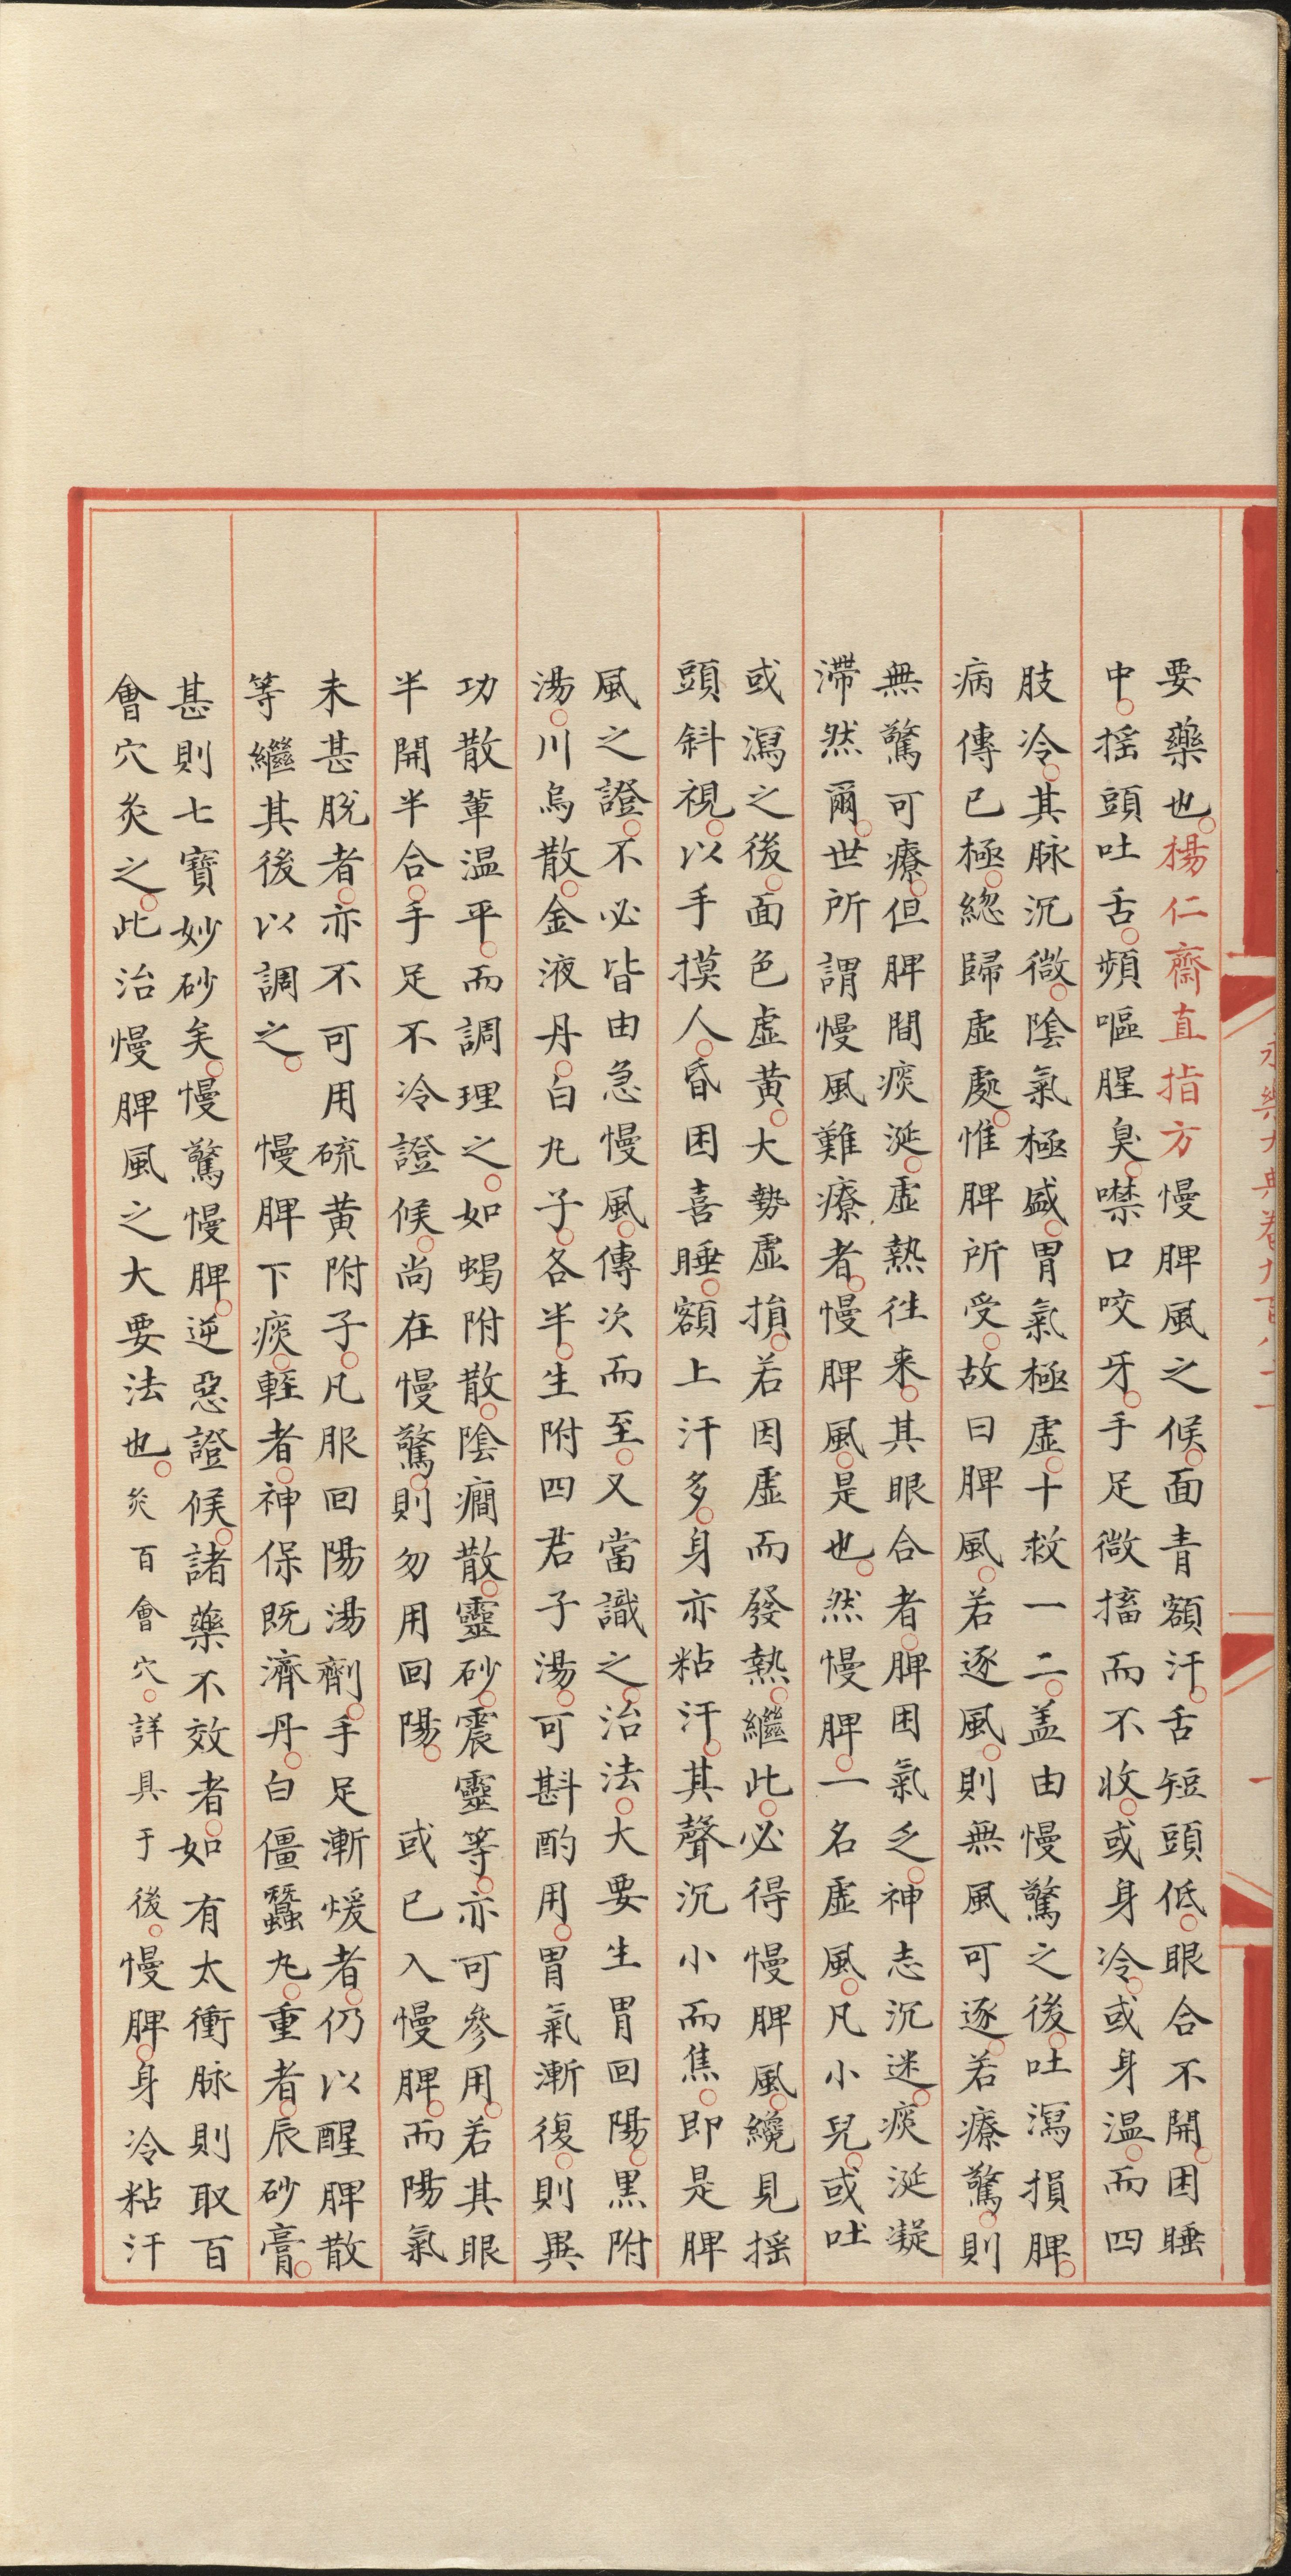 要藥也。楊仁齋直指方慢脾風之候。面青額汗。舌短頭低。眼合不開。困睡
中。揺頭吐舌。頻嘔腥臭。噤口咬牙。手足微搐而不收。或身冷。或身温。而四
肢冷。其脉沉微。隂氣極盛。胃氣極虚。十救一二。盖由慢驚之後。吐瀉損脾。
病傳已極。緫歸虚處。惟脾所受。故曰脾風。若逐風。則無風可逐。若療驚。則
無驚可療。但脾間痰涎。虚熱徃来。其眼合者。脾困氣乏。神志沉迷。痰涎凝
滯然爾。世所謂慢風難療者。慢脾風。是也。然慢脾。一名虚風。凡小兒。或吐
或瀉之後。面色虚黄。大勢虚損。若因虚而發熱。繼此。必得慢脾風。纔見揺
頭斜視。以手摸人。昏困喜睡。額上汗多。身亦粘汗。其聲沉小而焦。即是脾
風之證。不必皆由急慢風。傳次而至。又當識之。治法。大要生胃回陽。黒附
湯。川烏散。金液丹。白丸子。各半。生附四君子湯。可斟酌用。胃氣漸復。則異
功散軰温平。而調理之。如蝎附散。隂癎散。靈砂。震靈等。亦可參用。若其眼
半開半合。手足不冷證候。尚在慢驚。則勿用回陽。 或已入慢脾。而陽氣
未甚脫者。亦不可用硫黄附子。凡服回陽湯劑。手足漸煖者。仍以醒脾散
等繼其後以調之。 慢脾下痰。輕者。神保既濟丹。白僵蠶丸。重者。辰砂膏。
甚則七寶妙砂矣。慢驚慢脾。逆惡證候。諸藥不效者。如有太衝脉則取百
會穴灸之。此治慢脾風之大要法也。灸百會穴。詳具于後。慢脾。身冷粘汗
永樂大典卷九百八十一
一